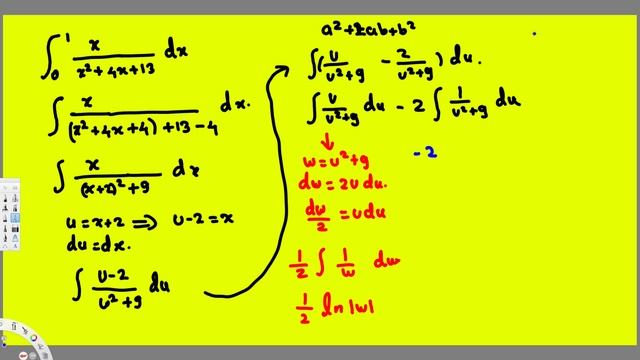 ∫₀¹ x/(x²+4x+13) dx
∫ x/((x²+4x+4)+13-4) dx.
∫ x/((x+2)²+9) dx
u=x+2 ⟹ u-2=x
du=dx.
∫ (u-2)/(u²+9) du
a²+2ab+b²
∫(u/(u²+9) - 2/(u²+9)) du.
∫ u/(u²+9) du - 2 ∫ 1/(u²+9) du
↓
w=u²+9
dw=2u du.
dw/2 = u du
1/2 ∫ 1/w dw
1/2 ln|w|
-2